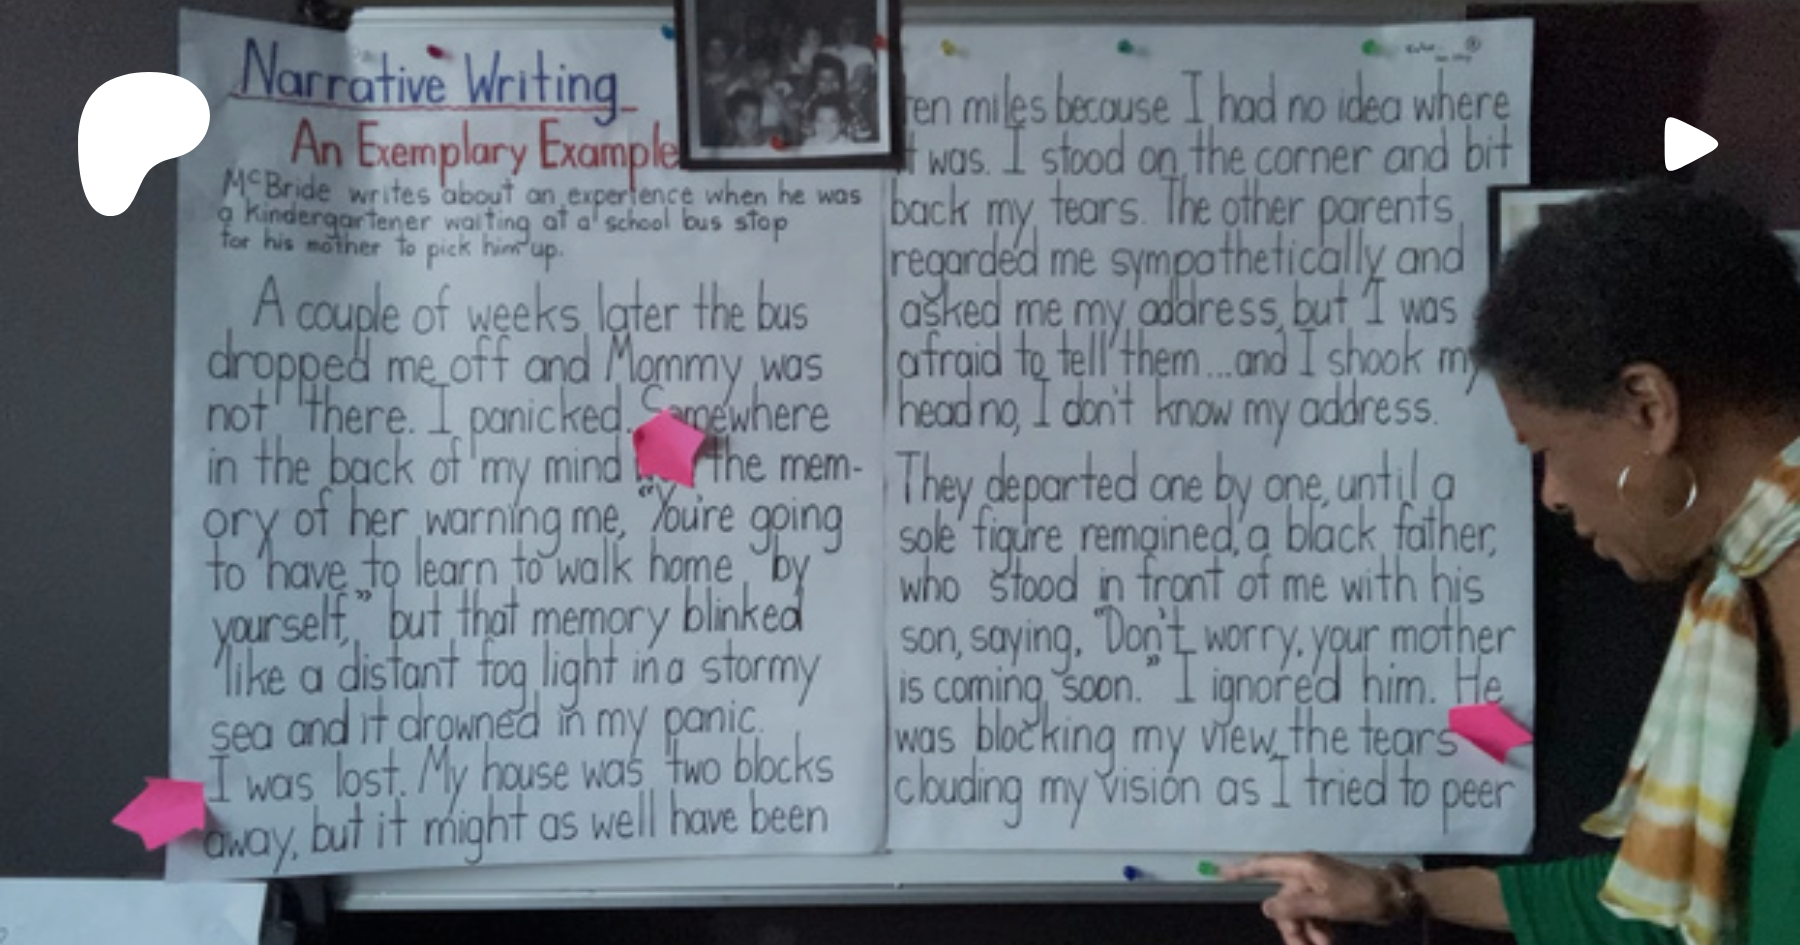 Narrative Writing
An Exemplary Example
McBride writes about an experience when he was
a kindergartener waiting at a school bus stop
for his mother to pick him up.
A couple of weeks later the bus
dropped me off and Mommy was
not there. I panicked. Somewhere
in the back of my mind the mem-
ory of her warning me, "You're going
to have to learn to walk home by
yourself," but that memory blinked
like a distant fog light in a stormy
sea and it drowned in my panic.
I was lost. My house was two blocks
away, but it might as well have been
ten miles because I had no idea where
it was. I stood on the corner and bit
back my tears. The other parents
regarded me sympathetically and
asked me my address, but I was
afraid to tell them...and I shook my
head no, I don't know my address.
They departed one by one, until a
sole figure remained, a black father,
who stood in front of me with his
son, saying, "Don't worry, your mother
is coming soon." I ignored him. He
was blocking my view, the tears
clouding my vision as I tried to peer